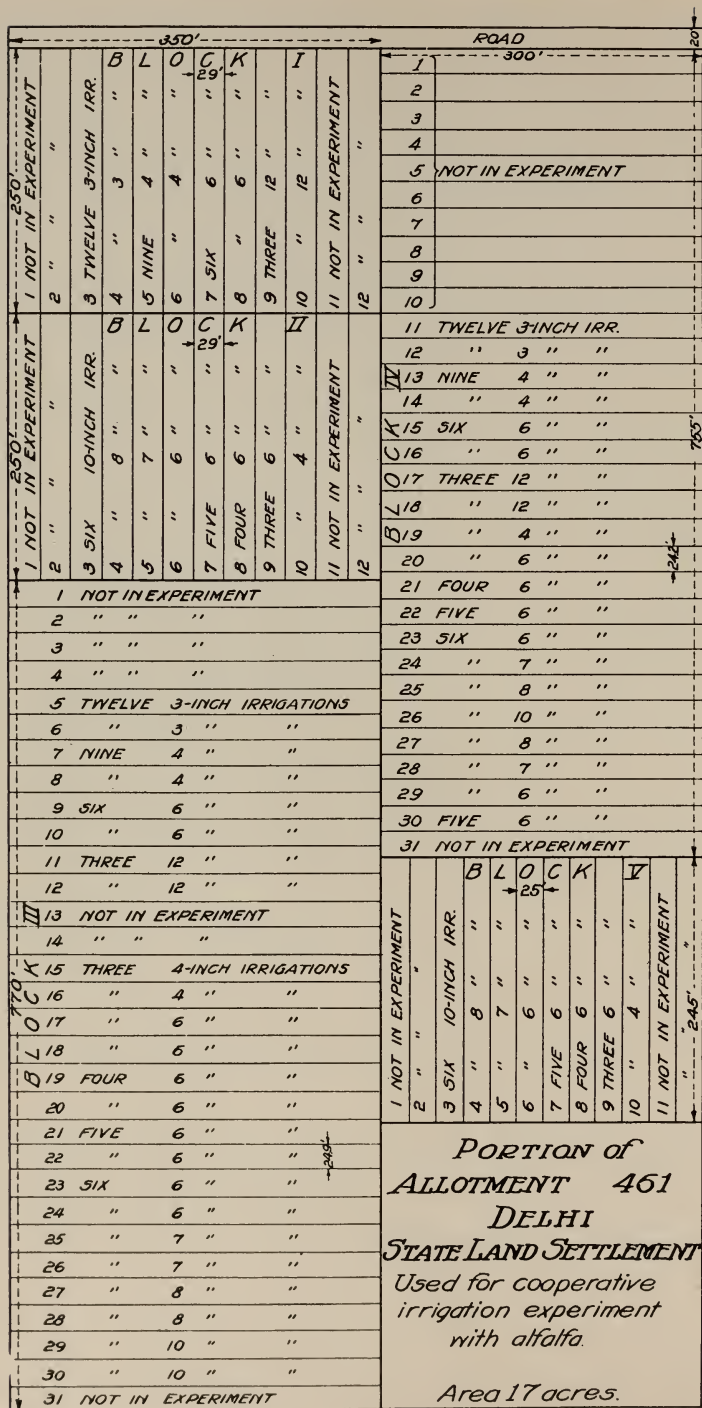 350'
ROAD
20'
BLOCK I
29'
250'
1 NOT IN EXPERIMENT
2 " " "
3 TWELVE 3-INCH IRR.
4 " 3 " "
5 NINE 4 " "
6 " 4 " "
7 SIX 6 " "
8 " 6 " "
9 THREE 12 " "
10 " 12 " "
11 NOT IN EXPERIMENT
12 " " "
BLOCK II
29'
250'
1 NOT IN EXPERIMENT
2 " " "
3 SIX 10-INCH IRR.
4 " 8 " "
5 " 7 " "
6 " 6 " "
7 FIVE 6 " "
8 FOUR 6 " "
9 THREE 6 " "
10 " 4 " "
11 NOT IN EXPERIMENT
12 " " "
BLOCK III
770'
1 NOT IN EXPERIMENT
2 " " "
3 " " "
4 " " "
5 TWELVE 3-INCH IRRIGATIONS
6 " 3 " "
7 NINE 4 " "
8 " 4 " "
9 SIX 6 " "
10 " 6 " "
11 THREE 12 " "
12 " 12 " "
13 NOT IN EXPERIMENT
14 " " "
15 THREE 4-INCH IRRIGATIONS
16 " 4 " "
17 " 6 " "
18 " 6 " "
19 FOUR 6 " "
20 " 6 " "
21 FIVE 6 " "
22 " 6 " "
23 SIX 6 " "
24 " 6 " "
25 " 7 " "
26 " 7 " "
27 " 8 " "
28 " 8 " "
29 " 10 " "
30 " 10 " "
31 NOT IN EXPERIMENT
300'
1
2
3
4
5 NOT IN EXPERIMENT
6
7
8
9
10
BLOCK IV
755'
11 TWELVE 3-INCH IRR.
12 " 3 " "
13 NINE 4 " "
14 " 4 " "
15 SIX 6 " "
16 " 6 " "
17 THREE 12 " "
18 " 12 " "
19 " 4 " "
20 " 6 " "
21 FOUR 6 " "
22 FIVE 6 " "
23 SIX 6 " "
24 " 7 " "
25 " 8 " "
26 " 10 " "
27 " 8 " "
28 " 7 " "
29 " 6 " "
30 FIVE 6 " "
31 NOT IN EXPERIMENT
BLOCK V
25'
245'
1 NOT IN EXPERIMENT
2 " " "
3 SIX 10-INCH IRR.
4 " 8 " "
5 " 7 " "
6 " 6 " "
7 FIVE 6 " "
8 FOUR 6 " "
9 THREE 6 " "
10 " 4 " "
11 NOT IN EXPERIMENT
" " "
PORTION of
ALLOTMENT 461
DELHI
STATE LAND SETTLEMENT
Used for cooperative
irrigation experiment
with alfalfa.
Area 17 acres.